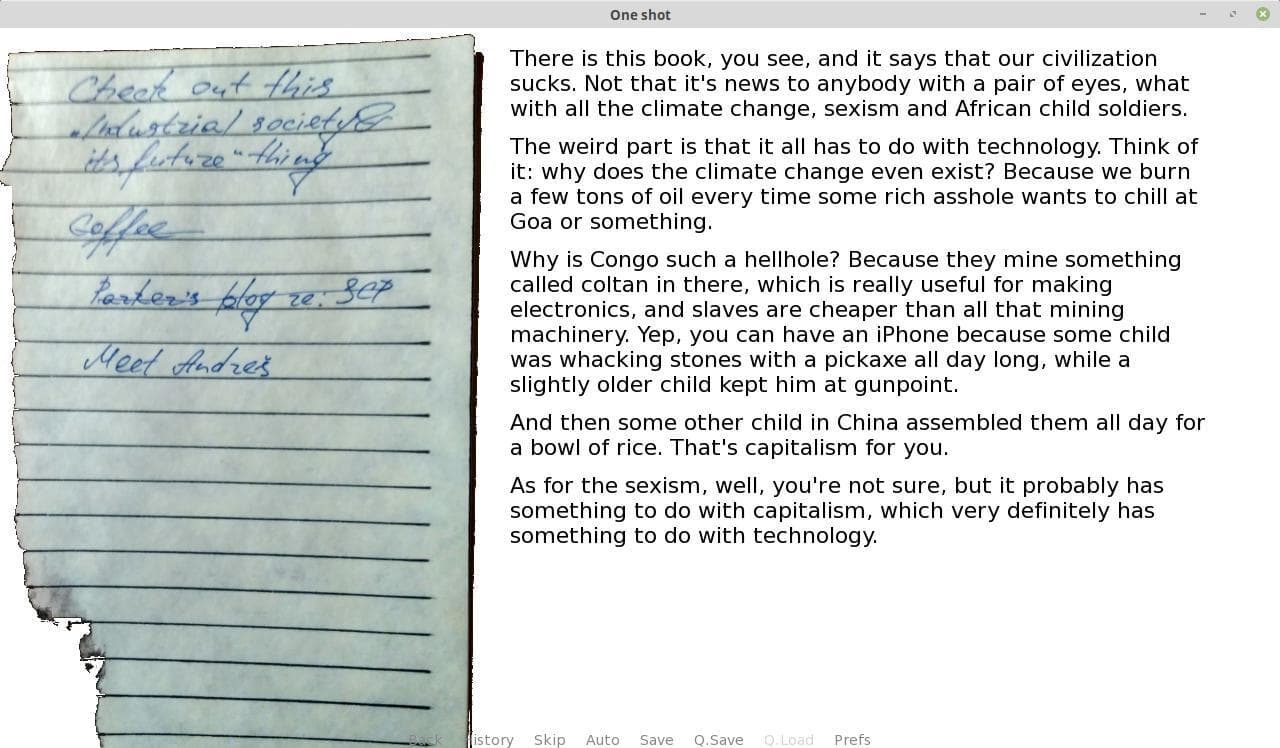 One shot
Check out this
„Industrial society &
its future“ thing
Coffee
Parker's blog re: SCP
Meet Andreš
There is this book, you see, and it says that our civilization
sucks. Not that it's news to anybody with a pair of eyes, what
with all the climate change, sexism and African child soldiers.
The weird part is that it all has to do with technology. Think of
it: why does the climate change even exist? Because we burn
a few tons of oil every time some rich asshole wants to chill at
Goa or something.
Why is Congo such a hellhole? Because they mine something
called coltan in there, which is really useful for making
electronics, and slaves are cheaper than all that mining
machinery. Yep, you can have an iPhone because some child
was whacking stones with a pickaxe all day long, while a
slightly older child kept him at gunpoint.
And then some other child in China assembled them all day for
a bowl of rice. That's capitalism for you.
As for the sexism, well, you're not sure, but it probably has
something to do with capitalism, which very definitely has
something to do with technology.
Back History Skip Auto Save Q.Save Q.Load Prefs